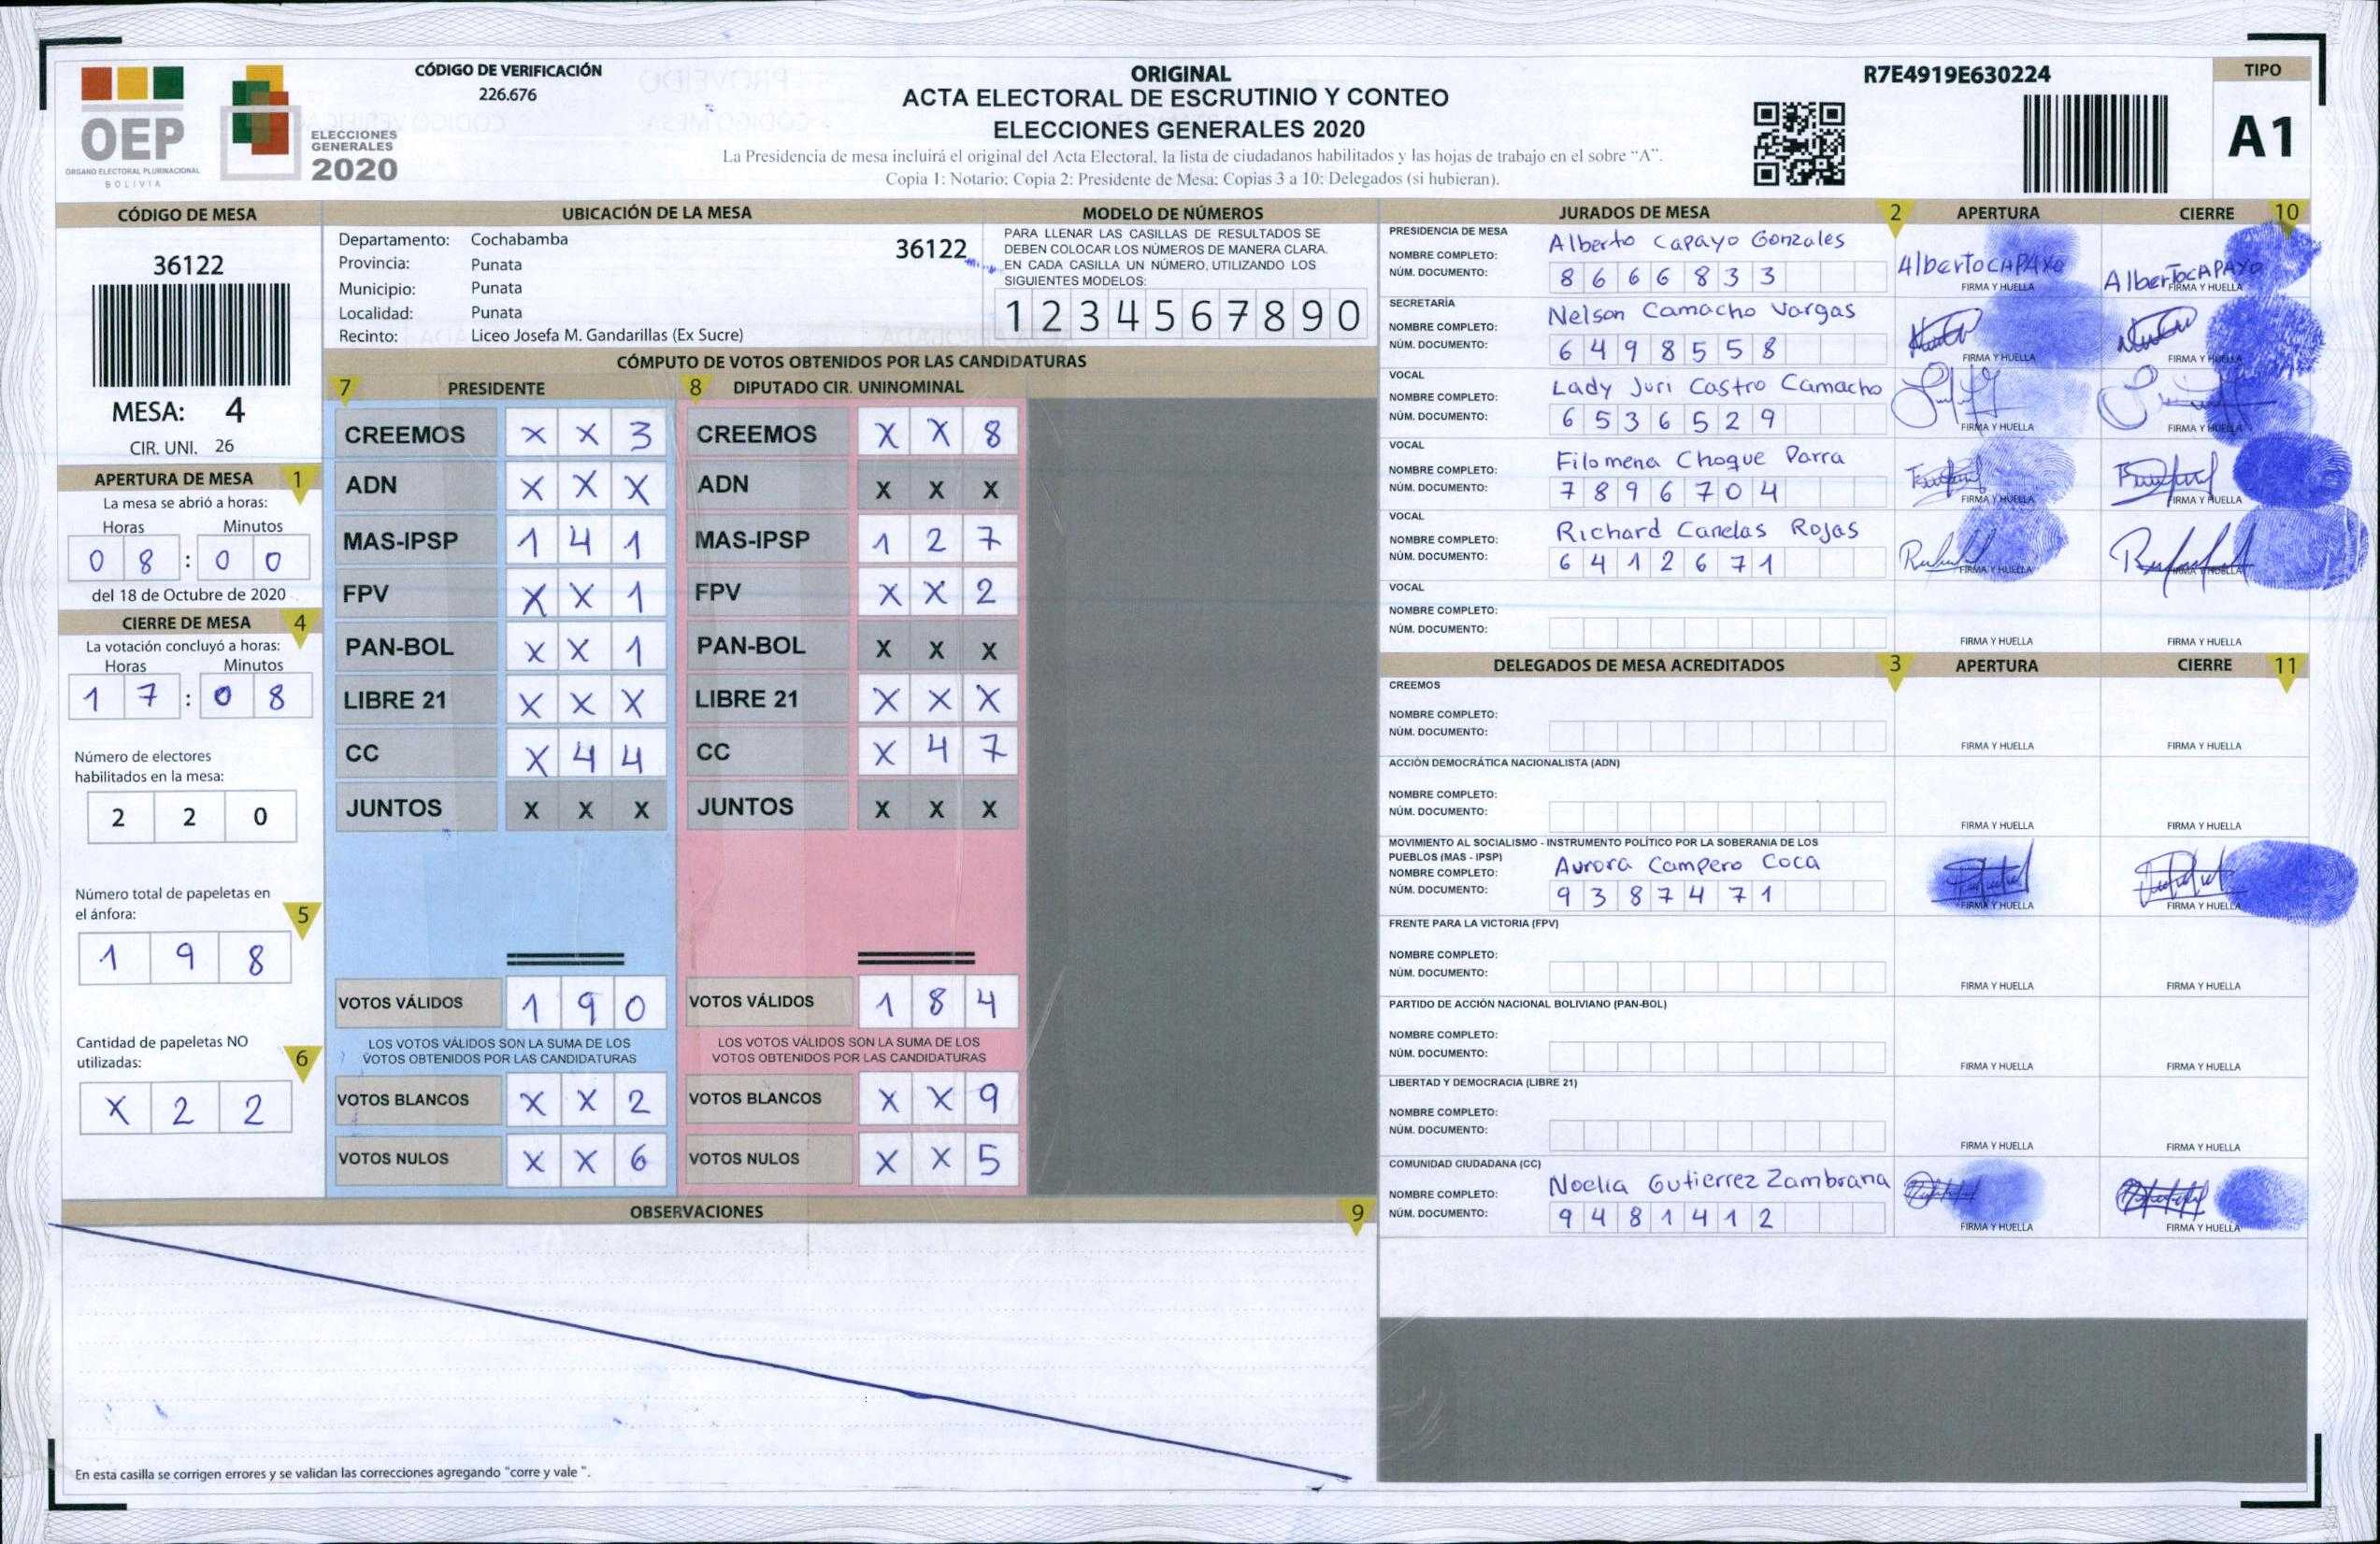 OEP
ÓRGANO ELECTORAL PLURINACIONAL
BOLIVIA
ELECCIONES
GENERALES
2020
CÓDIGO DE VERIFICACIÓN
226.676
ORIGINAL
ACTA ELECTORAL DE ESCRUTINIO Y CONTEO
ELECCIONES GENERALES 2020
La Presidencia de mesa incluirá el original del Acta Electoral, la lista de ciudadanos habilitados y las hojas de trabajo en el sobre “A”.
Copia 1: Notario; Copia 2: Presidente de Mesa; Copias 3 a 10: Delegados (si hubieran).
R7E4919E630224
TIPO
A1
CÓDIGO DE MESA
36122
MESA: 4
CIR. UNI. 26
APERTURA DE MESA 1
La mesa se abrió a horas:
Horas Minutos
0 8 : 0 0
del 18 de Octubre de 2020
CIERRE DE MESA 4
La votación concluyó a horas:
Horas Minutos
1 7 : 0 8
Número de electores
habilitados en la mesa:
2 2 0
Número total de papeletas en
el ánfora: 5
1 9 8
Cantidad de papeletas NO
utilizadas: 6
X 2 2
UBICACIÓN DE LA MESA
Departamento: Cochabamba 36122
Provincia: Punata
Municipio: Punata
Localidad: Punata
Recinto: Liceo Josefa M. Gandarillas (Ex Sucre)
MODELO DE NÚMEROS
PARA LLENAR LAS CASILLAS DE RESULTADOS SE
DEBEN COLOCAR LOS NÚMEROS DE MANERA CLARA.
EN CADA CASILLA UN NÚMERO, UTILIZANDO LOS
SIGUIENTES MODELOS:
1 2 3 4 5 6 7 8 9 0
CÓMPUTO DE VOTOS OBTENIDOS POR LAS CANDIDATURAS
7 PRESIDENTE 8 DIPUTADO CIR. UNINOMINAL
CREEMOS X X 3 CREEMOS X X 8
ADN X X X ADN X X X
MAS-IPSP 1 4 1 MAS-IPSP 1 2 7
FPV X X 1 FPV X X 2
PAN-BOL X X 1 PAN-BOL X X X
LIBRE 21 X X X LIBRE 21 X X X
CC X 4 4 CC X 4 7
JUNTOS X X X JUNTOS X X X
VOTOS VÁLIDOS 1 9 0 VOTOS VÁLIDOS 1 8 4
LOS VOTOS VÁLIDOS SON LA SUMA DE LOS LOS VOTOS VÁLIDOS SON LA SUMA DE LOS
VOTOS OBTENIDOS POR LAS CANDIDATURAS VOTOS OBTENIDOS POR LAS CANDIDATURAS
VOTOS BLANCOS X X 2 VOTOS BLANCOS X X 9
VOTOS NULOS X X 6 VOTOS NULOS X X 5
OBSERVACIONES 9
En esta casilla se corrigen errores y se validan las correcciones agregando "corre y vale ".
JURADOS DE MESA 2 APERTURA CIERRE 10
PRESIDENCIA DE MESA
NOMBRE COMPLETO: Alberto Capayo Gonzales
NÚM. DOCUMENTO: 8 6 6 6 8 3 3
Alberto CAPAYO Alberto CAPAYO
FIRMA Y HUELLA FIRMA Y HUELLA
SECRETARÍA
NOMBRE COMPLETO: Nelson Camacho Vargas
NÚM. DOCUMENTO: 6 4 9 8 5 5 8
FIRMA Y HUELLA FIRMA Y HUELLA
VOCAL
NOMBRE COMPLETO: Lady Juri Castro Camacho
NÚM. DOCUMENTO: 6 5 3 6 5 2 9
FIRMA Y HUELLA FIRMA Y HUELLA
VOCAL
NOMBRE COMPLETO: Filomena Choque Parra
NÚM. DOCUMENTO: 7 8 9 6 7 0 4
FIRMA Y HUELLA FIRMA Y HUELLA
VOCAL
NOMBRE COMPLETO: Richard Canelas Rojas
NÚM. DOCUMENTO: 6 4 1 2 6 7 1
FIRMA Y HUELLA FIRMA Y HUELLA
VOCAL
NOMBRE COMPLETO:
NÚM. DOCUMENTO:
FIRMA Y HUELLA FIRMA Y HUELLA
DELEGADOS DE MESA ACREDITADOS 3 APERTURA CIERRE 11
CREEMOS
NOMBRE COMPLETO:
NÚM. DOCUMENTO:
FIRMA Y HUELLA FIRMA Y HUELLA
ACCIÓN DEMOCRÁTICA NACIONALISTA (ADN)
NOMBRE COMPLETO:
NÚM. DOCUMENTO:
FIRMA Y HUELLA FIRMA Y HUELLA
MOVIMIENTO AL SOCIALISMO - INSTRUMENTO POLÍTICO POR LA SOBERANIA DE LOS
PUEBLOS (MAS - IPSP)
NOMBRE COMPLETO: Aurora Campero Coca
NÚM. DOCUMENTO: 9 3 8 7 4 7 1
FIRMA Y HUELLA FIRMA Y HUELLA
FRENTE PARA LA VICTORIA (FPV)
NOMBRE COMPLETO:
NÚM. DOCUMENTO:
FIRMA Y HUELLA FIRMA Y HUELLA
PARTIDO DE ACCIÓN NACIONAL BOLIVIANO (PAN-BOL)
NOMBRE COMPLETO:
NÚM. DOCUMENTO:
FIRMA Y HUELLA FIRMA Y HUELLA
LIBERTAD Y DEMOCRACIA (LIBRE 21)
NOMBRE COMPLETO:
NÚM. DOCUMENTO:
FIRMA Y HUELLA FIRMA Y HUELLA
COMUNIDAD CIUDADANA (CC)
NOMBRE COMPLETO: Noelia Gutierrez Zambrana
NÚM. DOCUMENTO: 9 4 8 1 4 1 2
FIRMA Y HUELLA FIRMA Y HUELLA